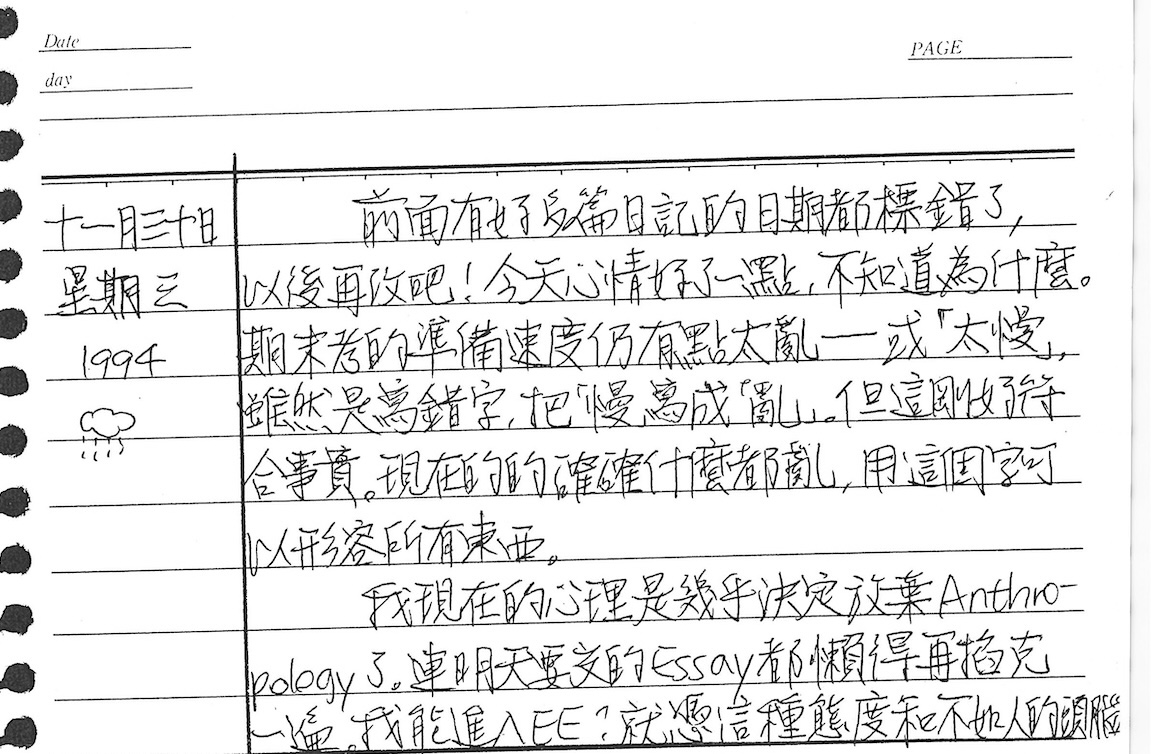 Date
PAGE
day
十一月三十日
星期三
1994
前面有好多篇日記的日期都標錯了,
以後再改吧!今天心情好了一點,不知道為什麼。
期末考的準備速度仍有點太亂——或「太慢」,
雖然是寫錯字,把「慢」寫成「亂」。但這剛好符
合事實。現在的的確確什麼都亂,用這個字可
以形容所有東西。
我現在的心理是幾乎決定放棄Anthro-
pology了。連明天要交的Essay都懶得再
一遍。我能進入EE?就憑這種態度和不如人的頭腦